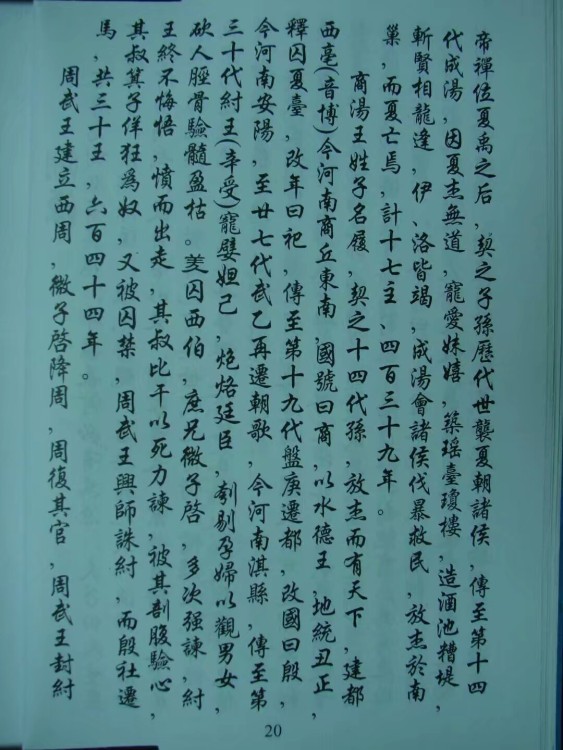 帝禪位夏禹之后，契之子孫歷代世襲夏朝諸侯，傳至第十四
代成湯，因夏桀無道，寵愛妹嬉，築瑶臺瓊樓，造酒池糟堤，
斬賢相龍逢，伊、洛皆竭，成湯會諸侯伐暴救民，放桀於南
巢，而夏亡焉，計十七主、四百三十九年。
商湯王姓子名履，契之十四代孫，放桀而有天下，建都
西亳(音博)今河南商丘東南，國號曰商，以水德王，地統丑正，
釋囚夏臺，改年曰祀，傳至第十九代盤庚遷都，改國曰殷，
今河南安陽，至廿七代武乙再遷朝歌，今河南淇縣，傳至第
三十代紂王(辛受)寵嬖妲己，炮烙廷臣，刳剔孕婦以觀男女，
砍人脛骨驗髓盈枯。羑囚西伯，庶兄微子啓，多次强諫，紂
王終不悔悟，憤而出走，其叔比干以死力諫，被其剖腹驗心，
其叔箕子佯狂爲奴，又被囚禁，周武王興師誅紂，而殷社遷
焉，共三十王，六百四十四年。
周武王建立西周，微子啓降周，周復其官，周武王封紂
20